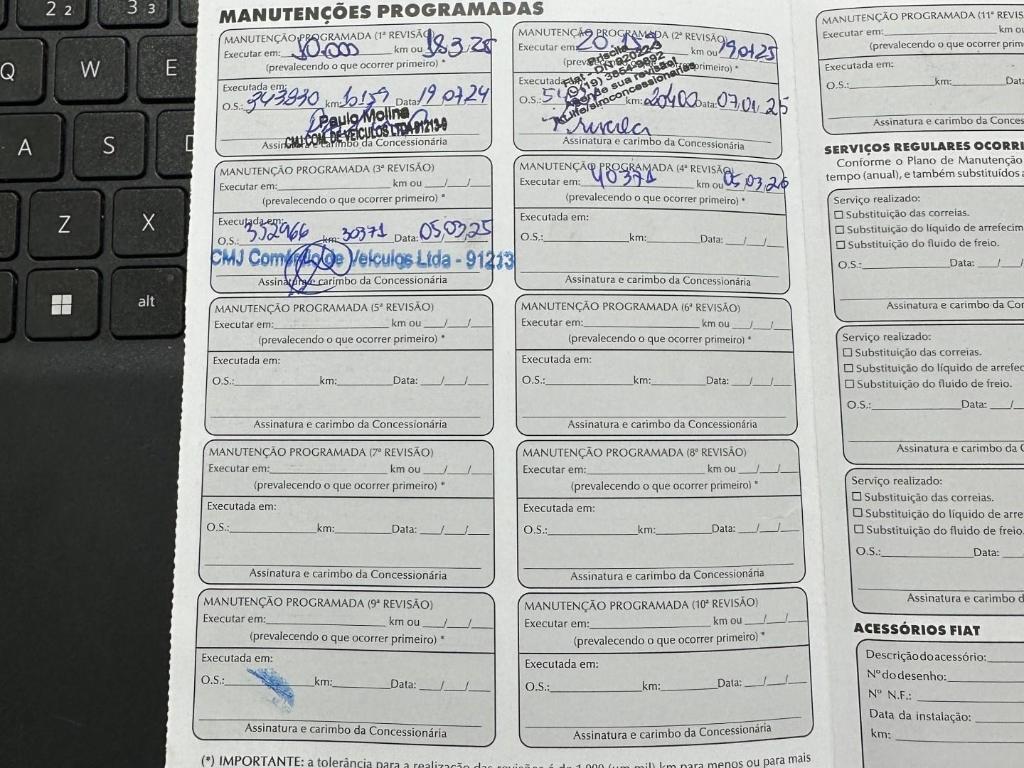 MANUTENÇÕES PROGRAMADAS
MANUTENÇÃO PROGRAMADA (1ª REVISÃO)
Executar em: 10.000 km ou 18.3.25
(prevalecendo o que ocorrer primeiro) *
Executada em:
O.S.: 343830 km: 10159 Data: 19 07 24
Paulo Molina
CMJ COM. DE VEÍCULOS LTDA 91213-9
Assinatura e carimbo da Concessionária
MANUTENÇÃO PROGRAMADA (2ª REVISÃO)
Executar em: 20 km ou 19.07.25
(prevalecendo o que ocorrer primeiro) *
Executada em:
O.S.: km: 20400 Data: 07.01.25
Priscila
agende sua revisão!
Assinatura e carimbo da Concessionária
MANUTENÇÃO PROGRAMADA (3ª REVISÃO)
Executar em: km ou / /
(prevalecendo o que ocorrer primeiro) *
Executada em:
O.S.: 352966 km: 30371 Data: 05.03.25
CMJ Comércio de Veículos Ltda - 91213
Assinatura e carimbo da Concessionária
MANUTENÇÃO PROGRAMADA (4ª REVISÃO)
Executar em: 40371 km ou 05.03.26
(prevalecendo o que ocorrer primeiro) *
Executada em:
O.S.: km: Data: / /
Assinatura e carimbo da Concessionária
MANUTENÇÃO PROGRAMADA (5ª REVISÃO)
Executar em: km ou / /
(prevalecendo o que ocorrer primeiro) *
Executada em:
O.S.: km: Data: / /
Assinatura e carimbo da Concessionária
MANUTENÇÃO PROGRAMADA (6ª REVISÃO)
Executar em: km ou / /
(prevalecendo o que ocorrer primeiro) *
Executada em:
O.S.: km: Data: / /
Assinatura e carimbo da Concessionária
MANUTENÇÃO PROGRAMADA (7ª REVISÃO)
Executar em: km ou / /
(prevalecendo o que ocorrer primeiro) *
Executada em:
O.S.: km: Data: / /
Assinatura e carimbo da Concessionária
MANUTENÇÃO PROGRAMADA (8ª REVISÃO)
Executar em: km ou / /
(prevalecendo o que ocorrer primeiro) *
Executada em:
O.S.: km: Data: / /
Assinatura e carimbo da Concessionária
MANUTENÇÃO PROGRAMADA (9ª REVISÃO)
Executar em: km ou / /
(prevalecendo o que ocorrer primeiro) *
Executada em:
O.S.: km: Data: / /
Assinatura e carimbo da Concessionária
MANUTENÇÃO PROGRAMADA (10ª REVISÃO)
Executar em: km ou / /
(prevalecendo o que ocorrer primeiro) *
Executada em:
O.S.: km: Data: / /
Assinatura e carimbo da Concessionária
(*) IMPORTANTE: a tolerância para a realização das revisões é de 1.000 (um mil) km para menos ou para mais
MANUTENÇÃO PROGRAMADA (11ª REVIS
Executar em: km ou
(prevalecendo o que ocorrer prim
Executada em:
O.S.: km: Data:
Assinatura e carimbo da Conces
SERVIÇOS REGULARES OCORRI
Conforme o Plano de Manutenção
tempo (anual), e também substituídos a
Serviço realizado:
Substituição das correias.
Substituição do líquido de arrefecim
Substituição do fluido de freio.
O.S.: Data: /
Assinatura e carimbo da Con
Serviço realizado:
Substituição das correias.
Substituição do líquido de arrefec
Substituição do fluido de freio.
O.S.: Data: /
Assinatura e carimbo da C
Serviço realizado:
Substituição das correias.
Substituição do líquido de arre
Substituição do fluido de freio.
O.S.: Data:
Assinatura e carimbo d
ACESSÓRIOS FIAT
Descrição do acessório:
Nº do desenho:
Nº N.F.:
Data da instalação:
km:
2 2
3 3
Q
W
E
A
S
D
Z
X
alt